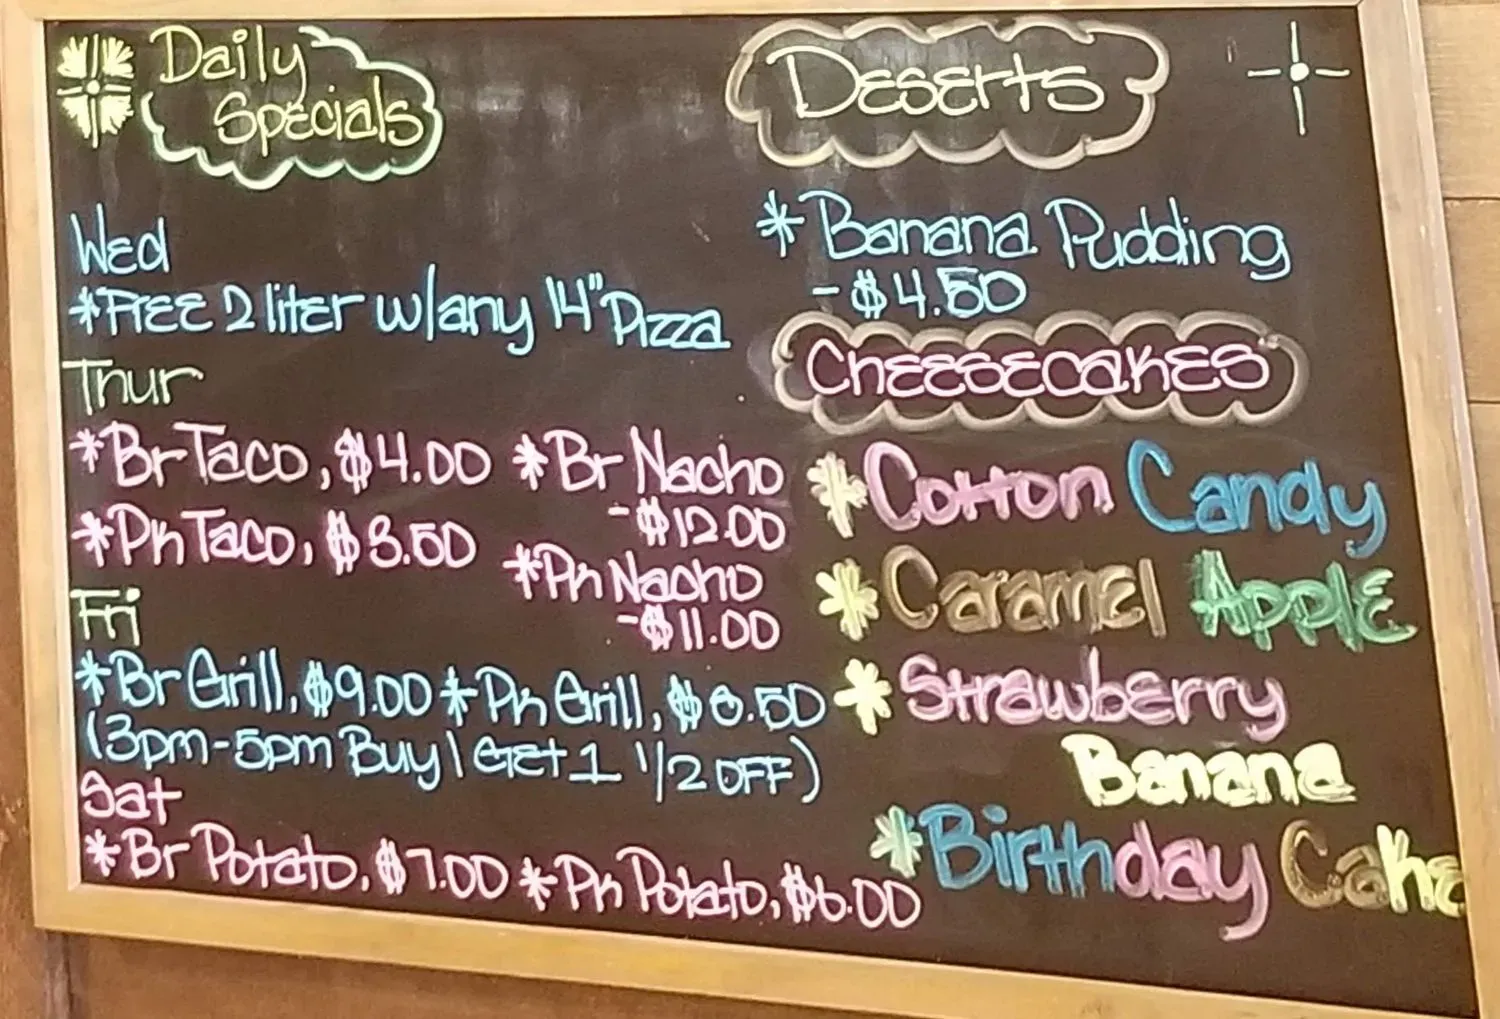 Daily
Specials
Wed
*Free 2 liter w/any 14" Pizza
Thur
*Br Taco, $4.00 *Br Nacho
-$12.00
*Pk Taco, $3.50
*Pk Nacho
-$11.00
Fri
*Br Grill, $9.00 *Pk Grill, $8.50
(3pm-5pm Buy 1 Get 1 1/2 OFF)
Sat
*Br Potato, $7.00 *Pk Potato, $6.00
Deserts
*Banana Pudding
-$4.50
Cheesecakes
*Cotton Candy
*Caramel Apple
*Strawberry
Banana
*Birthday Cake